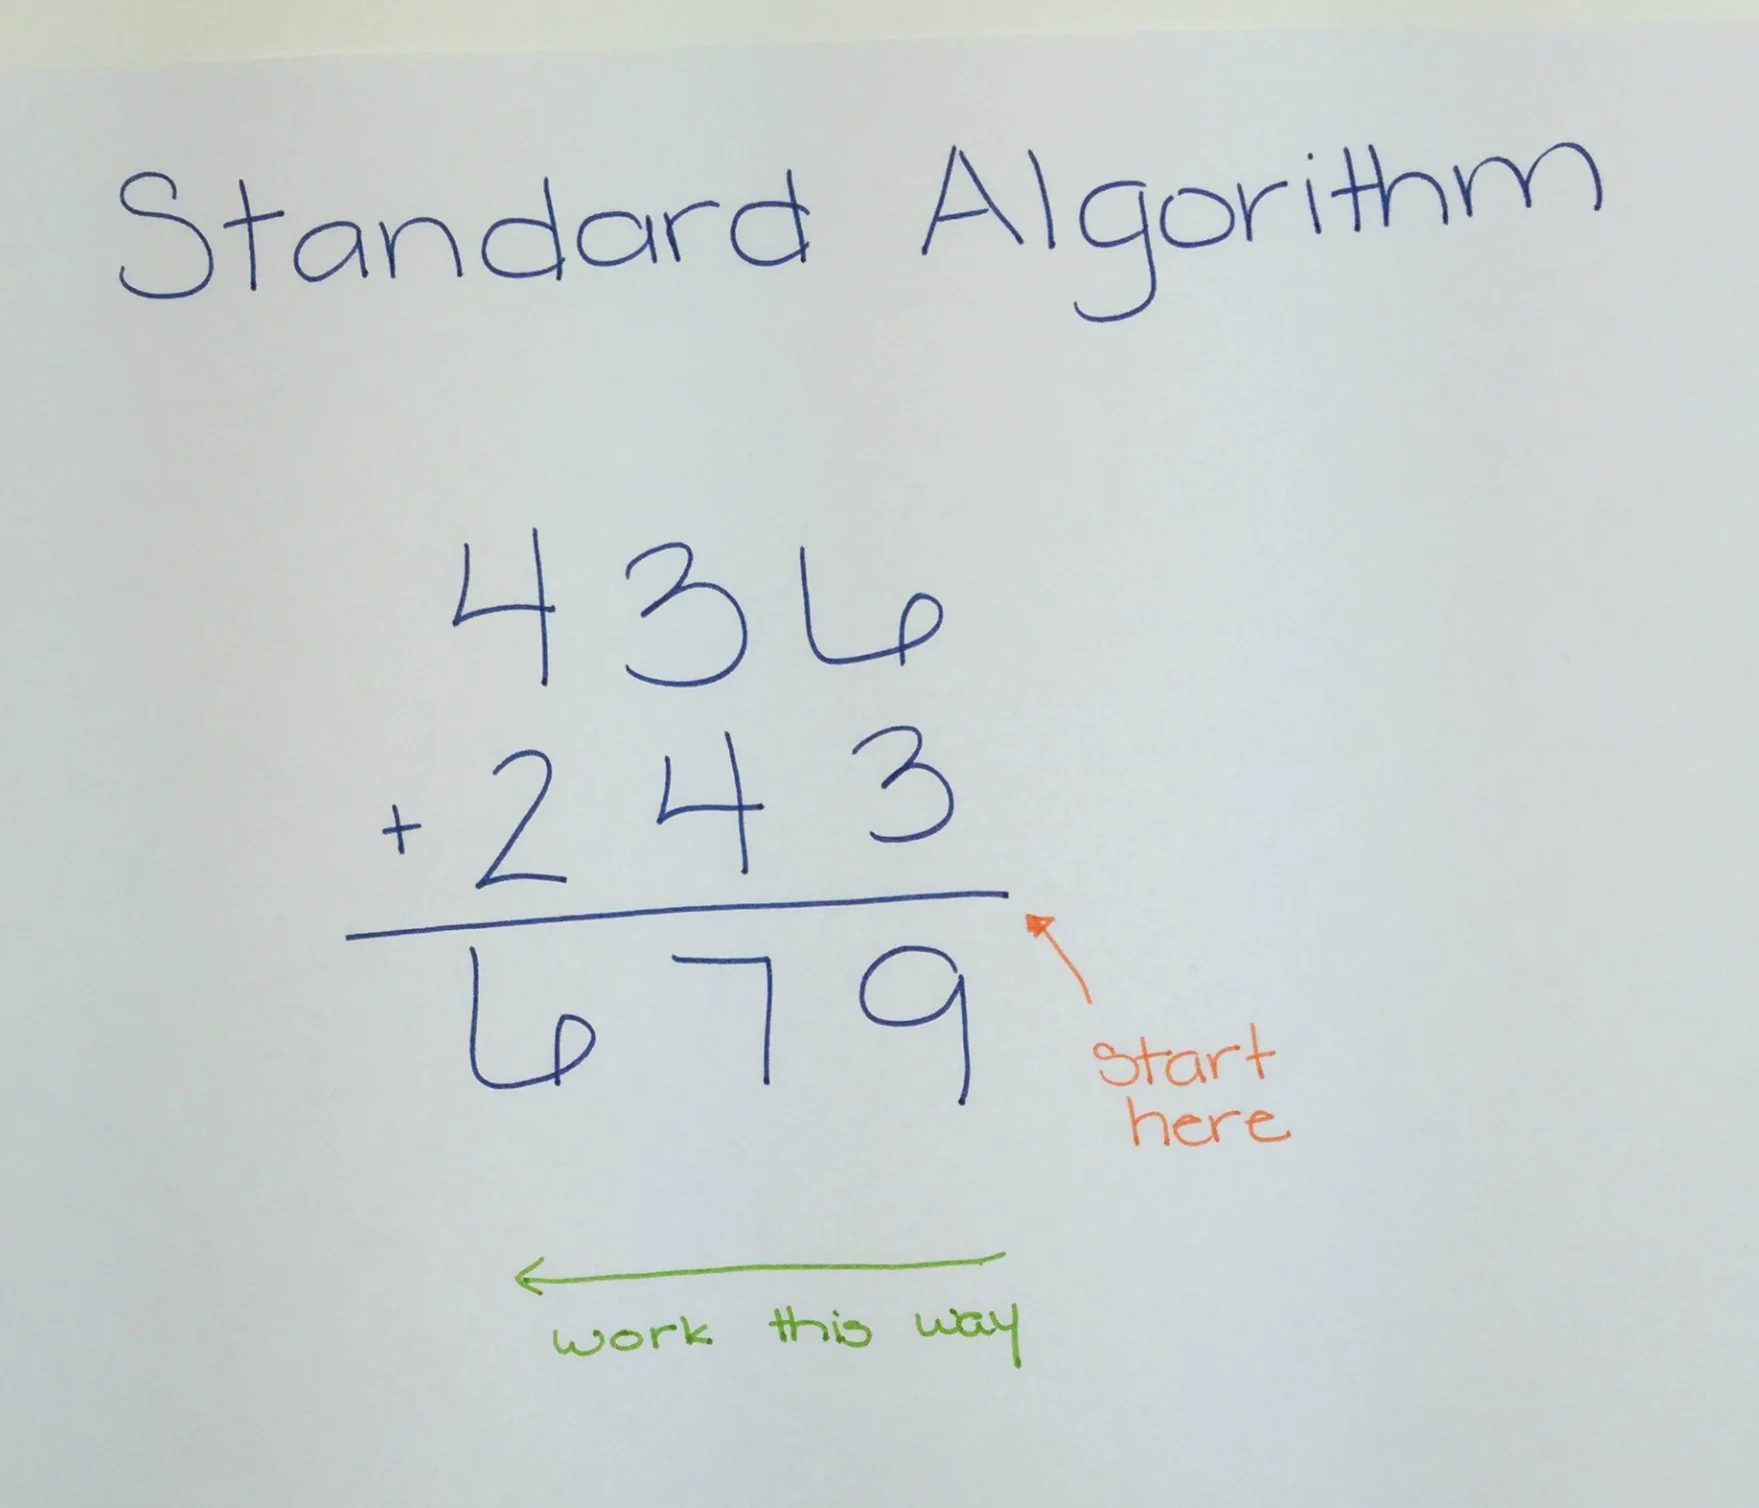 Standard Algorithm
436
+ 243
679
start
here
work this way